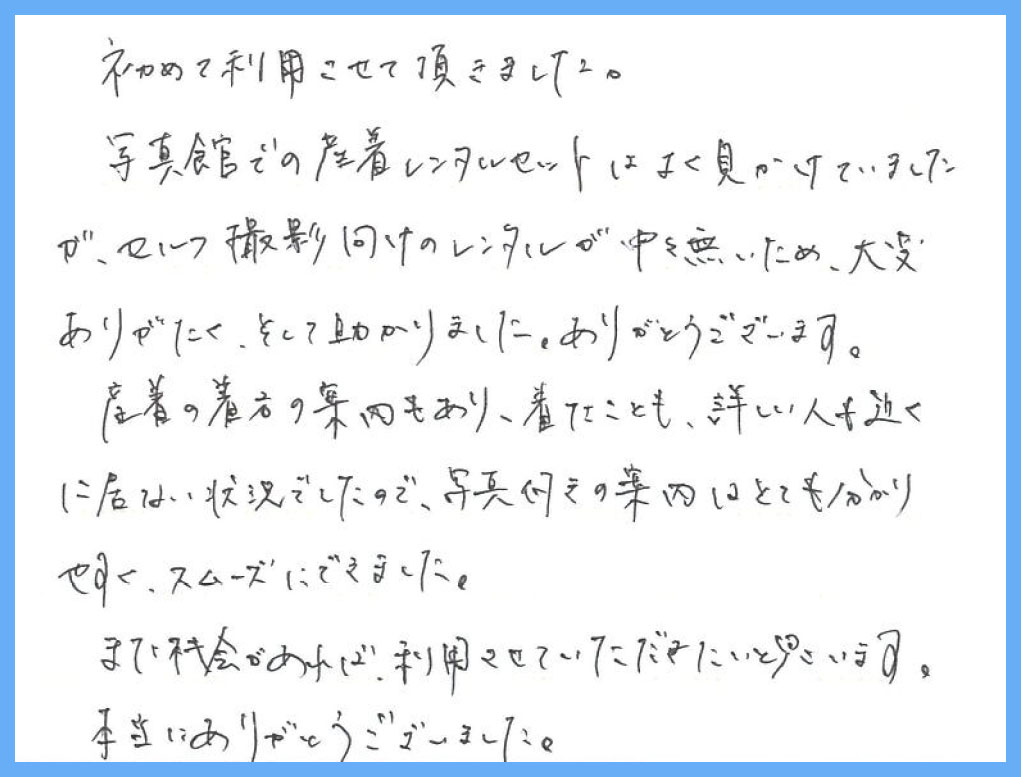 初めて利用させて頂きました。
写真館での産着レンタルセットはよく見かけていました
が、セルフ撮影向けのレンタルが中々無いため、大変
ありがたく、そして助かりました。ありがとうございます。
産着の着方の案内もあり、着たことも、詳しい人も近く
に居ない状況でしたので、写真付きの案内はとても分かり
やすく、スムーズにできました。
また機会があれば、利用させていただきたいと思います。
本当にありがとうございました。